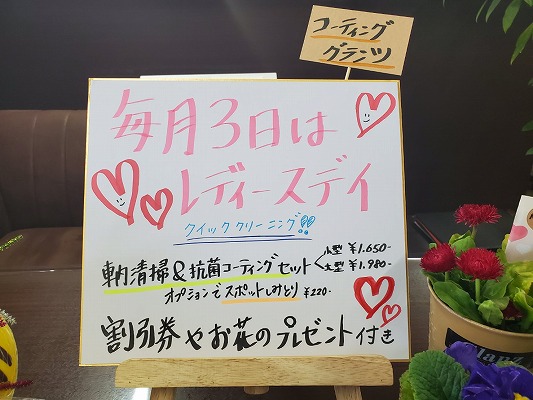 コーティング
グランツ
毎月3日は
レディースデイ
クイッククリーニング!!
車内清掃&抗菌コーティングセット<小型 ¥1.650-
大型 ¥1.980-
オプションでスポットしみとり ¥220-
割引券やお花のプレゼント付き